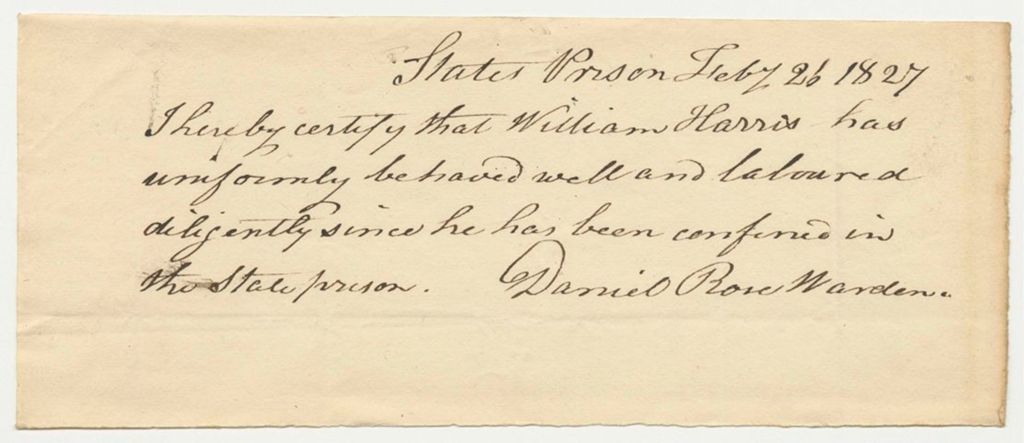 States Prison Feby 26 1827
I hereby certify that William Harris has
uniformly behaved well and laboured
diligently since he has been confined in
the State prison. Daniel Rose Warden.